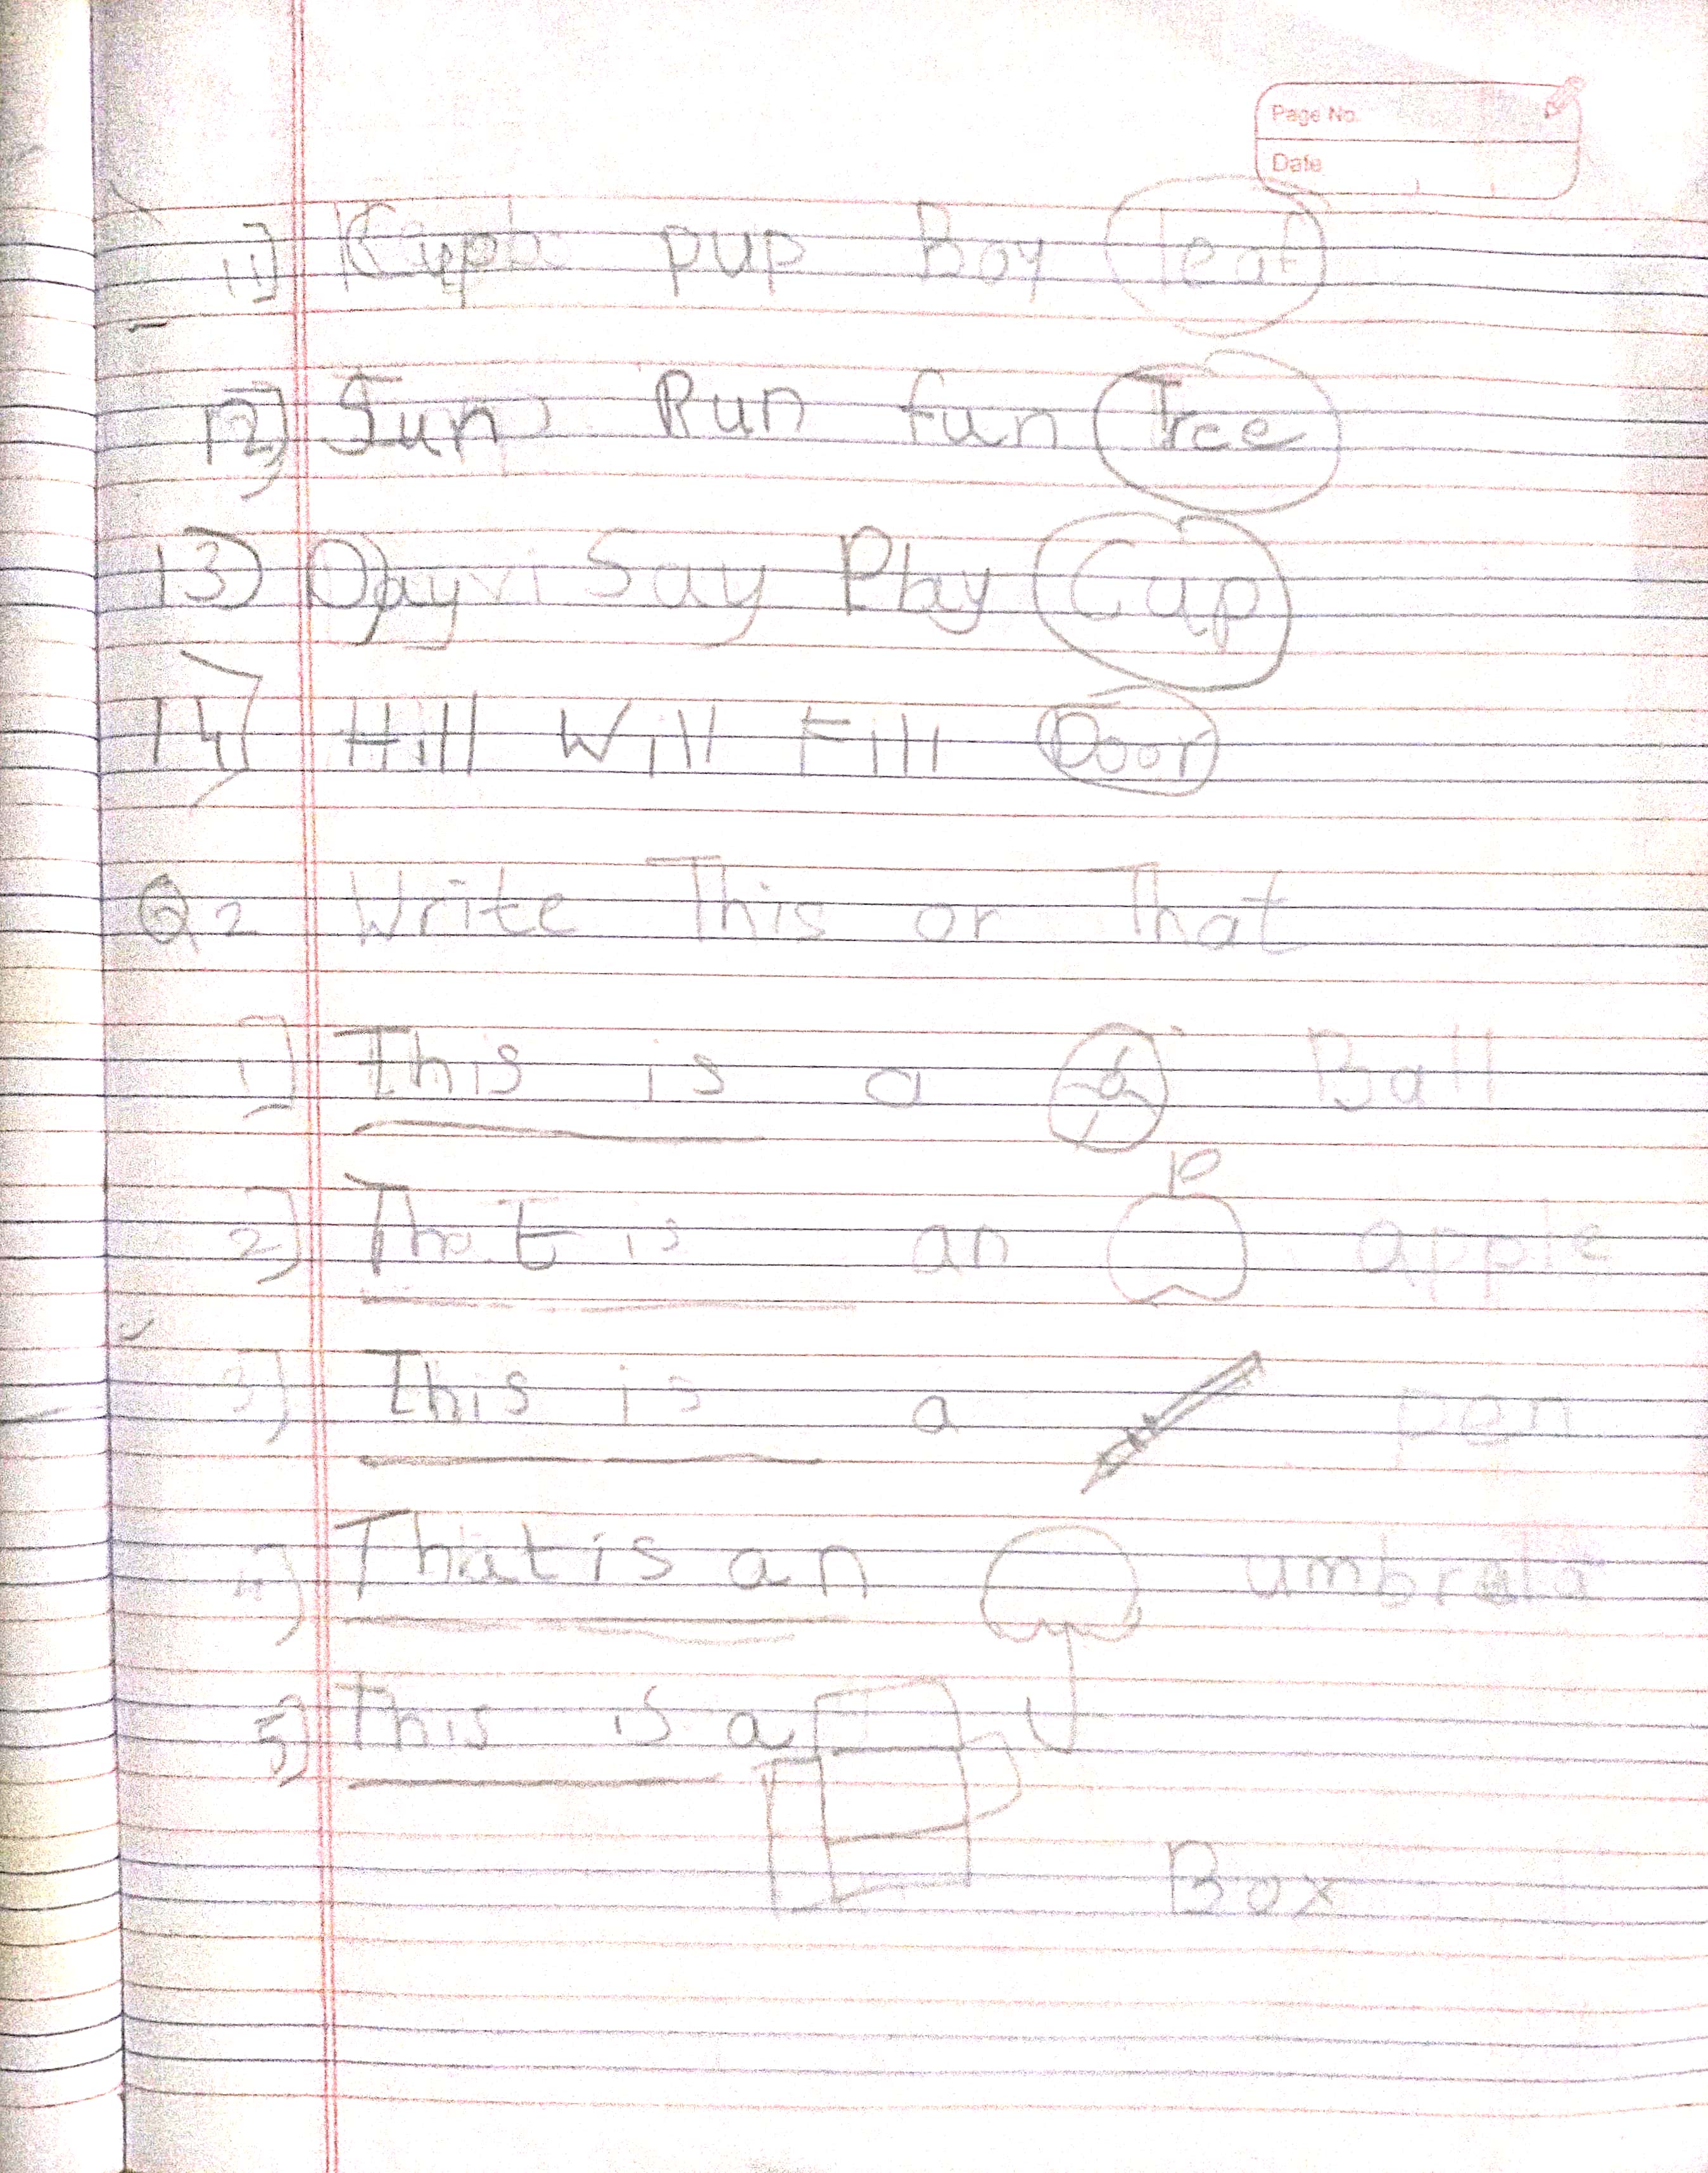 Page No.
Date
11) pup Boy leaf
12) Sun Run fun Tree
13) Day Say Play Cup
14) Hill Will Fill Door
Q2 Write This or That
1) This is a Ball
2) That is an apple
3) This is a pen
4) That is an umbrela
5) This is a
Box